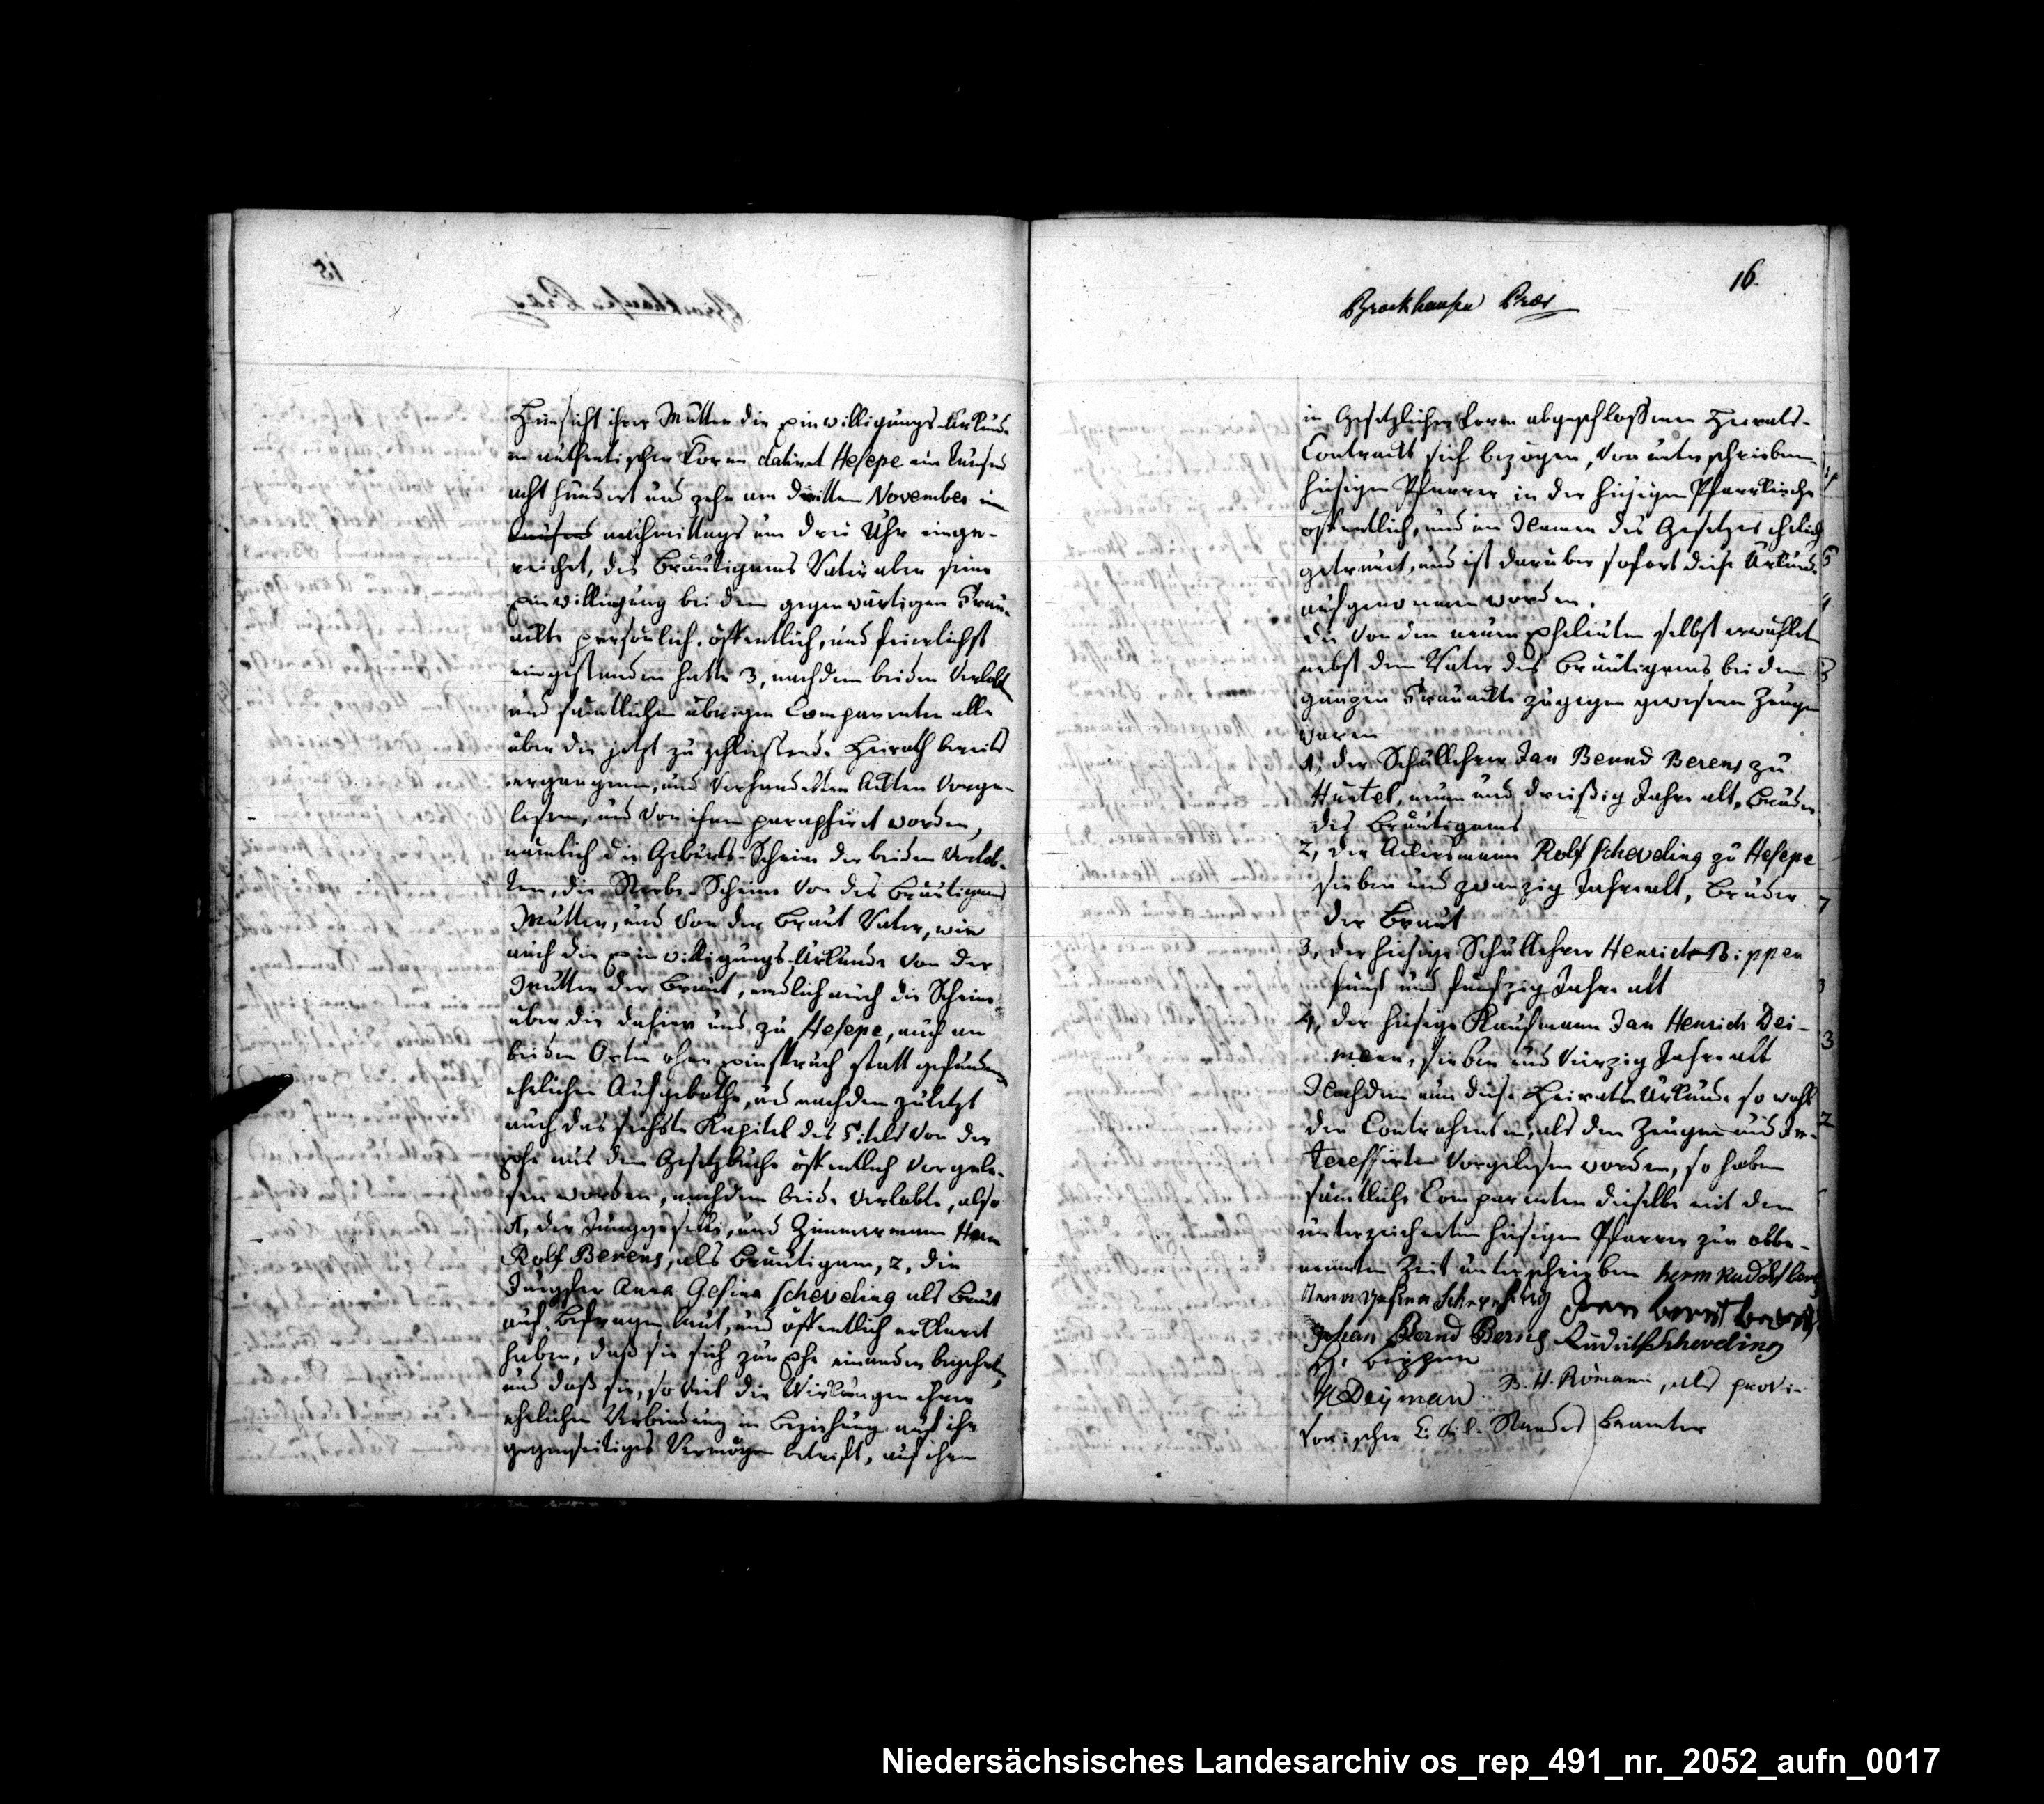 Hinsicht ihrer Mutter die Einwilligungs-Urkunde
in authentischer Form datiret Hesepe ein tausend
acht hundert und zehn am dritten November im
nachmittags um drei Uhr einge-
reichet, des Bräutigams Vater aber seine
Einwilligung bei dem gegenwärtigen Trau-
akte persönlich, öffentlich, und feierlichst
eingestanden hatte 3, nachdem beiden Verlobten
und sämtlichen übrigen Comparenten alle
über die jetzt zu schließende Heirath bereits
ergangenen, und verhandelten Akten vorge-
lesen, und von ihnen paraphirt worden,
nämlich die Geburts-Scheine der beiden Verlob-
ten, die Sterbe-Scheine von des Bräutigams
Mutter, und von der Braut Vater, wie
auch die Einwilligungs-Urkunde von der
Mutter der Braut, endlich auch die Scheine
über die dahier und zu Hesepe, auch an
beiden Orten ohne Einspruch statt gefundenen
ehelichen Aufgebothe, und nachdem zuletzt
auch das sechste Kapitel des Titels von der
Ehe aus dem Gesetzbuche öffentlich vorgele-
sen worden, nachdem beide Verlobte, also
1, der Junggeselle, und Zimmermann Herm
Rolf Berens, als Bräutigam, 2, die
Jungfer Anna Gesina Scheveling als Braut
auf Befragen laut, und öffentlich erklaret
haben, daß sie sich zur Ehe einander begehrten,
und daß sie, so viel die Wirkungen ihrer
ehelichen Verbindung in Beziehung auf ihr
gegenseitiges Vermögen betrift, auf ihren
16.
Brockhausen Præs
in Gesetzlicher Form abgeschlossenen Heirats-
Contrackt sich bezogen, von unterschriebenem
hiesigen Pfarrer in der hiesigen Pfarrkirche
öffentlich, und im Namen des Gesetzes ehelich
getrauet, und ist darüber sofort diese Urkunde
aufgenommen worden.
die von den neuen Eheleuten selbst erwählten
nebst dem Vater des Bräutigams bei dem
ganzen Trauakte zugegen gewesenen Zeugen
waren
1, der Schullehrer Jan Bernd Berens zu
Huntel, neun und dreißig Jahre alt, Bruder
des Bräutigams
2, der Ackersmann Rolf Scheveling zu Hesepe
sieben und zwanzig Jahre alt, Bruder
der Braut
3, der hiesige Schullehrer Henrich Bippen
fünf und funfzig Jahre alt
4, der hiesige Kaufmann Jan Henrich Dei-
mann, sieben und vierzig Jahre alt
Nachdem nun diese Heirats-Urkunde so wohl
den Contrahenten, als den Zeugen und In-
teressirten vorgelesen worden, so haben
sämtliche Comparenten dieselbe mit dem
unterzeichneten hiesigen Pfarrer zur obbe-
nannten Zeit unterschrieben herm Rudolf berens
Anna Gesina Scheveling Jan berent berens
Johan Bernd Berens Rudolf Scheveling
H. Bippen
H Deÿman B. H. Römann, als provi-
sorischer Civil-Standes Beamter